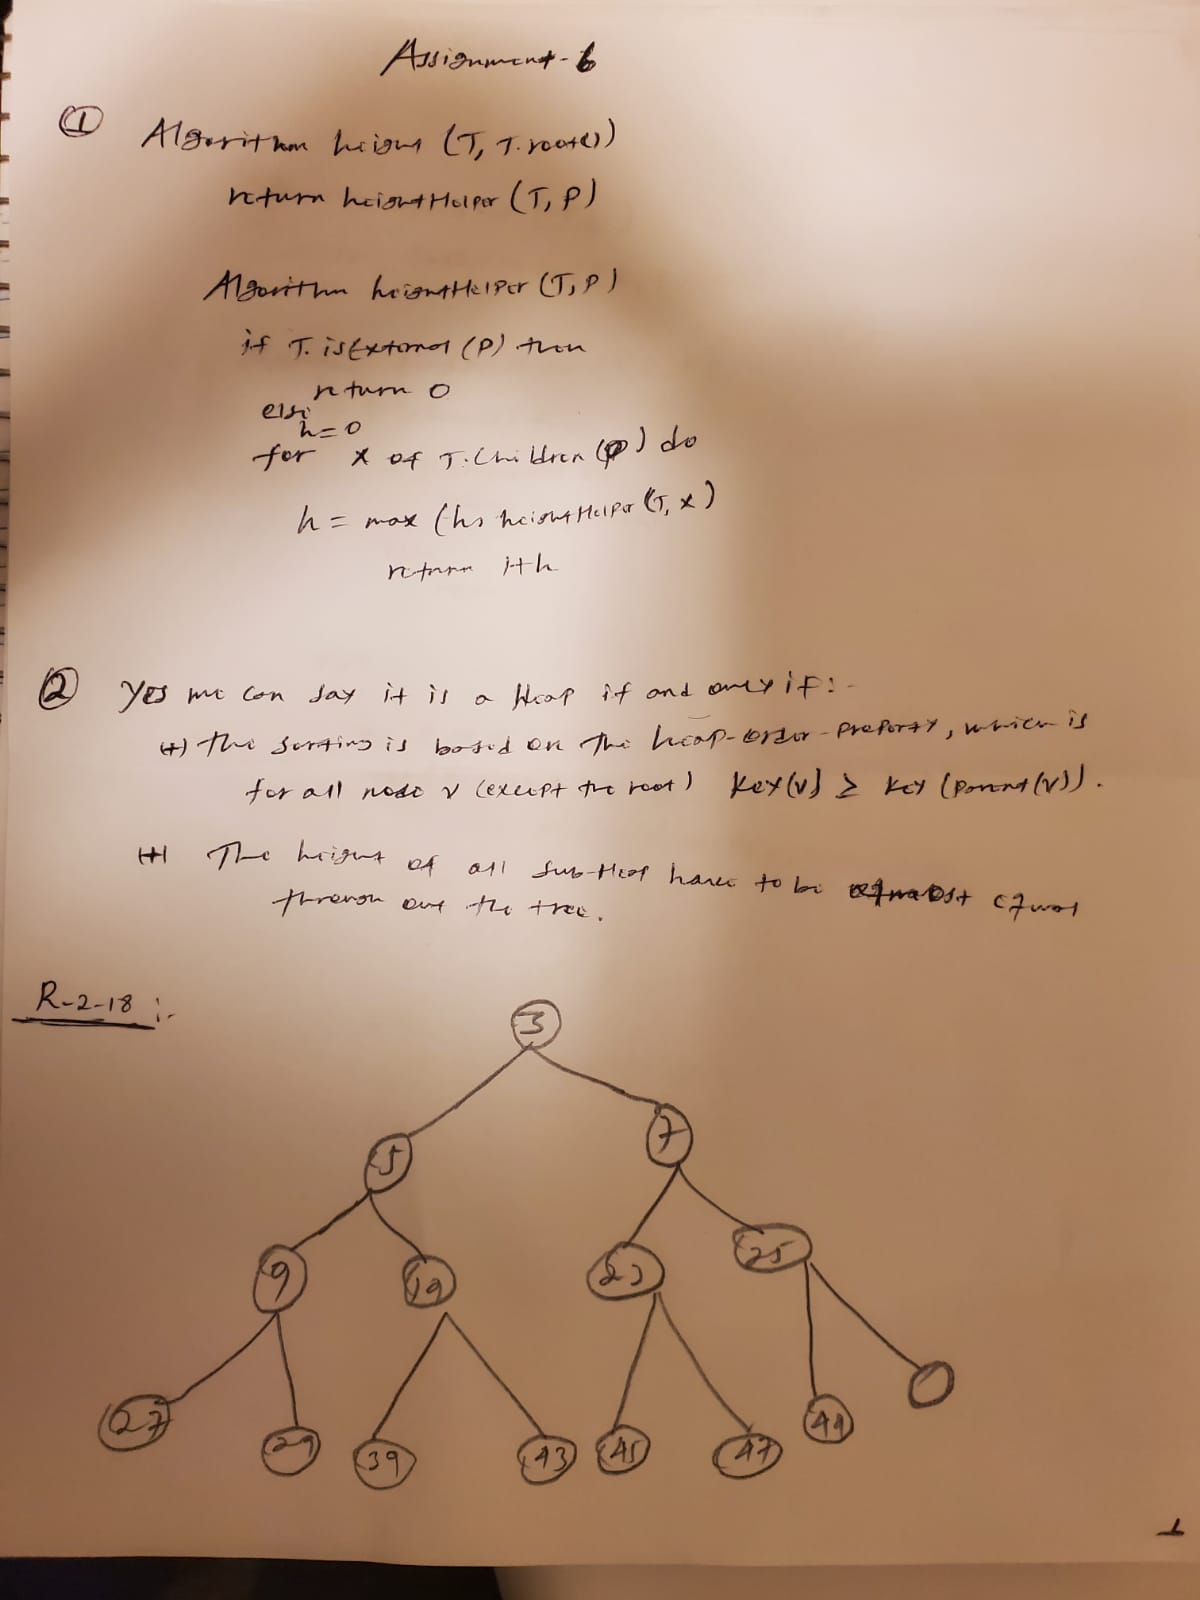 Assignment-6
① Algorithm height (T, T.root())
return heightHelper (T, P)
Algorithm heightHelper (T, P)
if T. isExternal (P) then
return 0
else
h=0
for x of T.Children (P) do
h = max (h, heightHelper (T, x)
return 1+h
② Yes we can say it is a Heap if and only if:-
the sorting is based on the heap-order-property, which is
for all node v (except the root) Key(v) ≥ Key (Parent(v)).
The height of all sub-Heap have to be equal
through out the tree.
R-2-18 :-
3
5 7
9 19 23 25
27 29 39 43 45 47 49
1